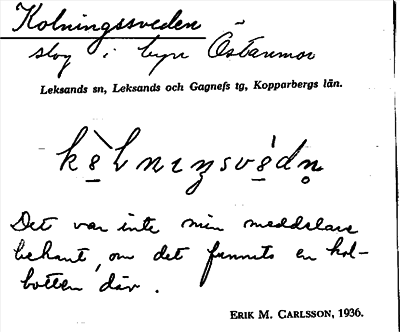 Kolningssveden
skog i byn Östanmor
Leksands sn, Leksands och Gagnefs tg, Kopparbergs län.
Det var inte min meddelare
bekant, om det funnits en kol-
botten där.
ERIK M. CARLSSON, 1936.